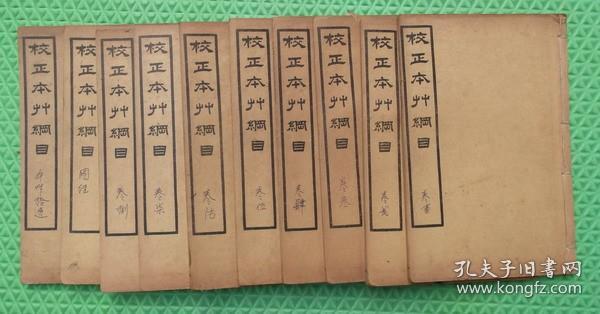 校正本艸綱目
卷壹
校正本艸綱目
卷贰
校正本艸綱目
卷叁
校正本艸綱目
卷肆
校正本艸綱目
卷伍
校正本艸綱目
卷陆
校正本艸綱目
卷柒
校正本艸綱目
卷捌
校正本艸綱目
圖經
校正本艸綱目
拾遗
孔夫子旧书网
www.kongfz.com